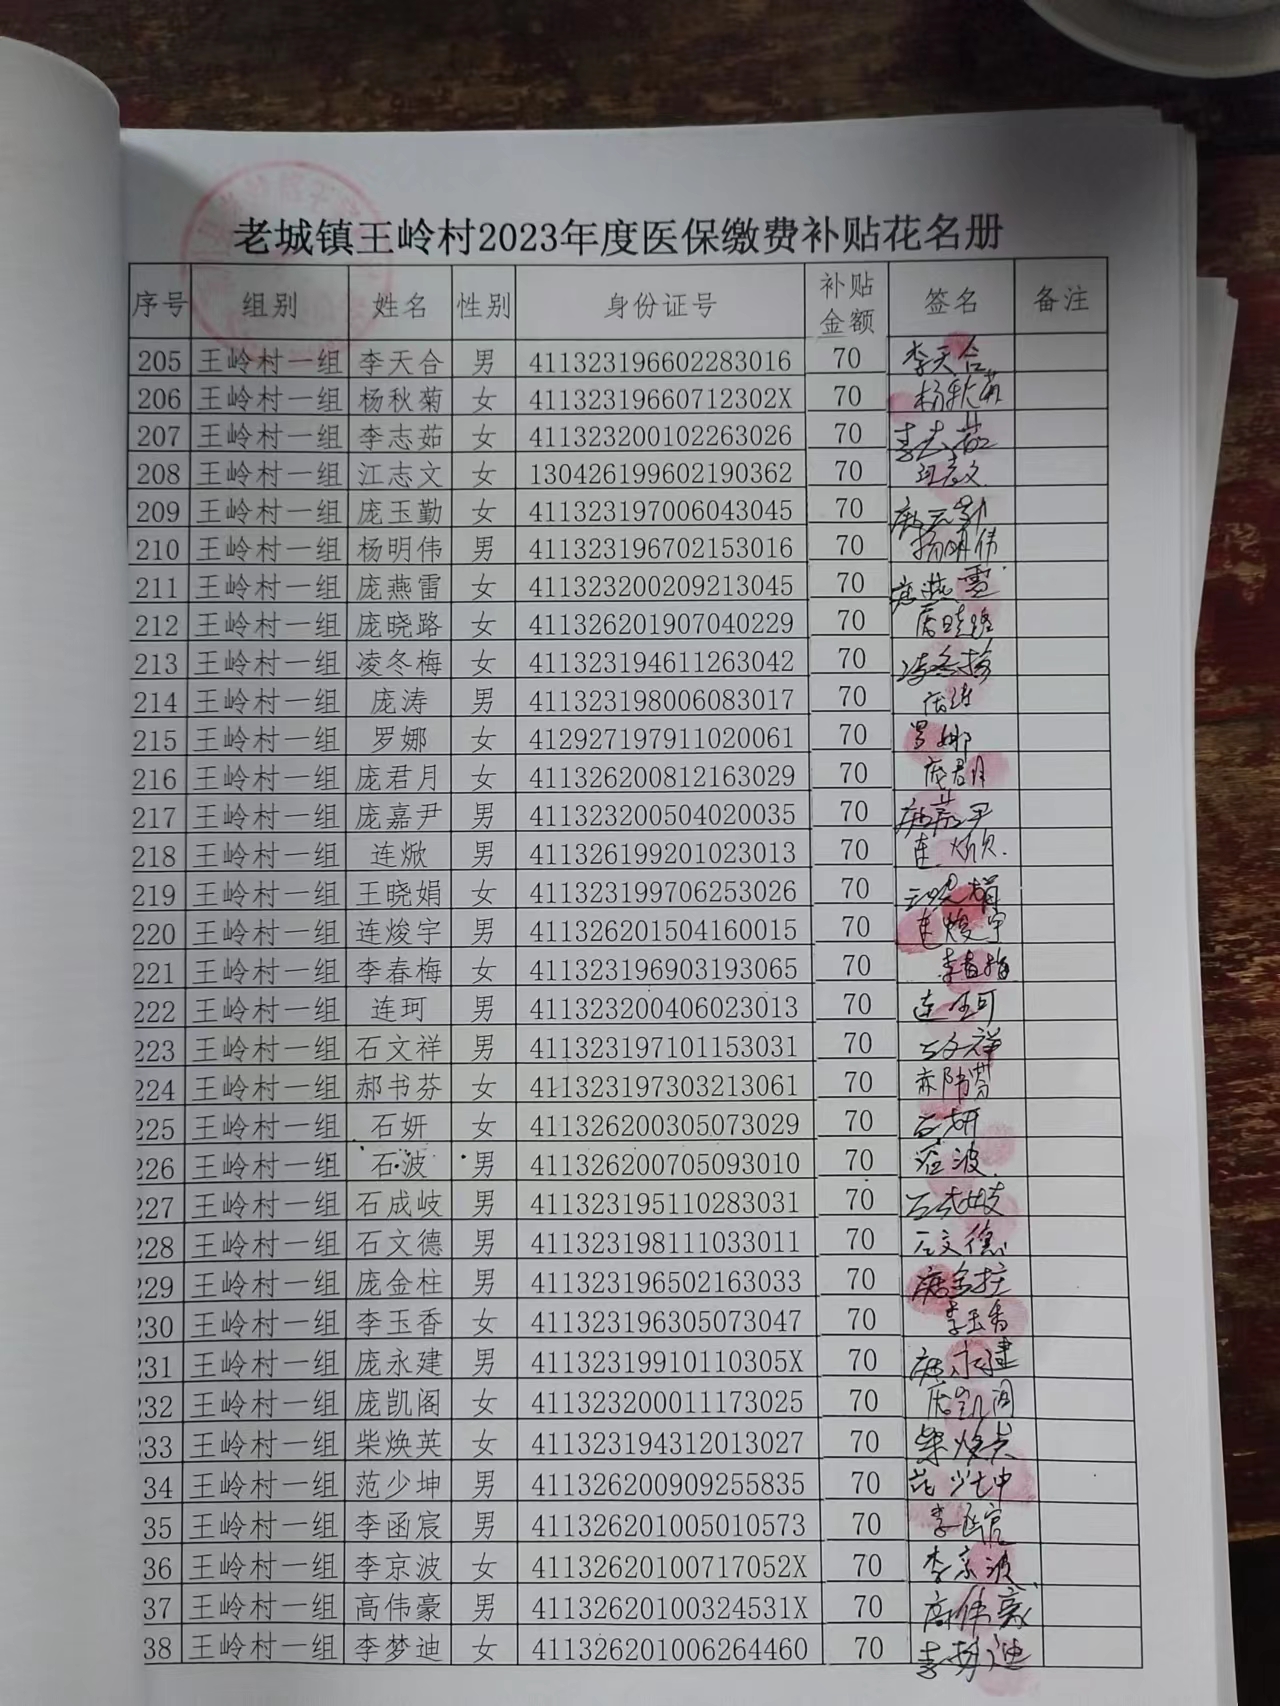 老城镇王岭村2023年度医保缴费补贴花名册
序号 组别 姓名 性别 身份证号 补贴金额 签名 备注
205 王岭村一组 李天合 男 411323196602283016 70 李天合
206 王岭村一组 杨秋菊 女 41132319660712302X 70 杨秋菊
207 王岭村一组 李志茹 女 411323200102263026 70 李志茹
208 王岭村一组 江志文 女 130426199602190362 70
209 王岭村一组 庞玉勤 女 411323197006043045 70 庞玉勤
210 王岭村一组 杨明伟 男 411323196702153016 70 杨明伟
211 王岭村一组 庞燕雷 女 411323200209213045 70 庞燕雷
212 王岭村一组 庞晓路 女 411326201907040229 70 庞晓路
213 王岭村一组 凌冬梅 女 411323194611263042 70 凌冬梅
214 王岭村一组 庞涛 男 411323198006083017 70 庞涛
215 王岭村一组 罗娜 女 412927197911020061 70 罗娜
216 王岭村一组 庞君月 女 411326200812163029 70 庞君月
217 王岭村一组 庞嘉尹 男 411323200504020035 70 庞嘉尹
218 王岭村一组 连焮 男 411326199201023013 70
219 王岭村一组 王晓娟 女 411323199706253026 70 王晓娟
220 王岭村一组 连焌宇 男 411326201504160015 70 连焌宇
221 王岭村一组 李春梅 女 411323196903193065 70 李春梅
222 王岭村一组 连珂 男 411323200406023013 70 连珂
223 王岭村一组 石文祥 男 411323197101153031 70 石文祥
224 王岭村一组 郝书芬 女 411323197303213061 70
225 王岭村一组 石妍 女 411326200305073029 70 石妍
226 王岭村一组 石波 男 411326200705093010 70 石波
227 王岭村一组 石成岐 男 411323195110283031 70 石成岐
228 王岭村一组 石文德 男 411323198111033011 70 石文德
229 王岭村一组 庞金柱 男 411323196502163033 70 庞金柱
230 王岭村一组 李玉香 女 411323196305073047 70 李玉香
231 王岭村一组 庞永建 男 41132319910110305X 70 庞永建
232 王岭村一组 庞凯阁 女 411323200011173025 70 庞凯阁
233 王岭村一组 柴焕英 女 411323194312013027 70 柴焕英
34 王岭村一组 范少坤 男 411326200909255835 70 范少坤
35 王岭村一组 李函宸 男 411326201005010573 70 李函宸
36 王岭村一组 李京波 女 41132620100717052X 70 李京波
37 王岭村一组 高伟豪 男 41132620100324531X 70 高伟豪
38 王岭村一组 李梦迪 女 411326201006264460 70 李梦迪